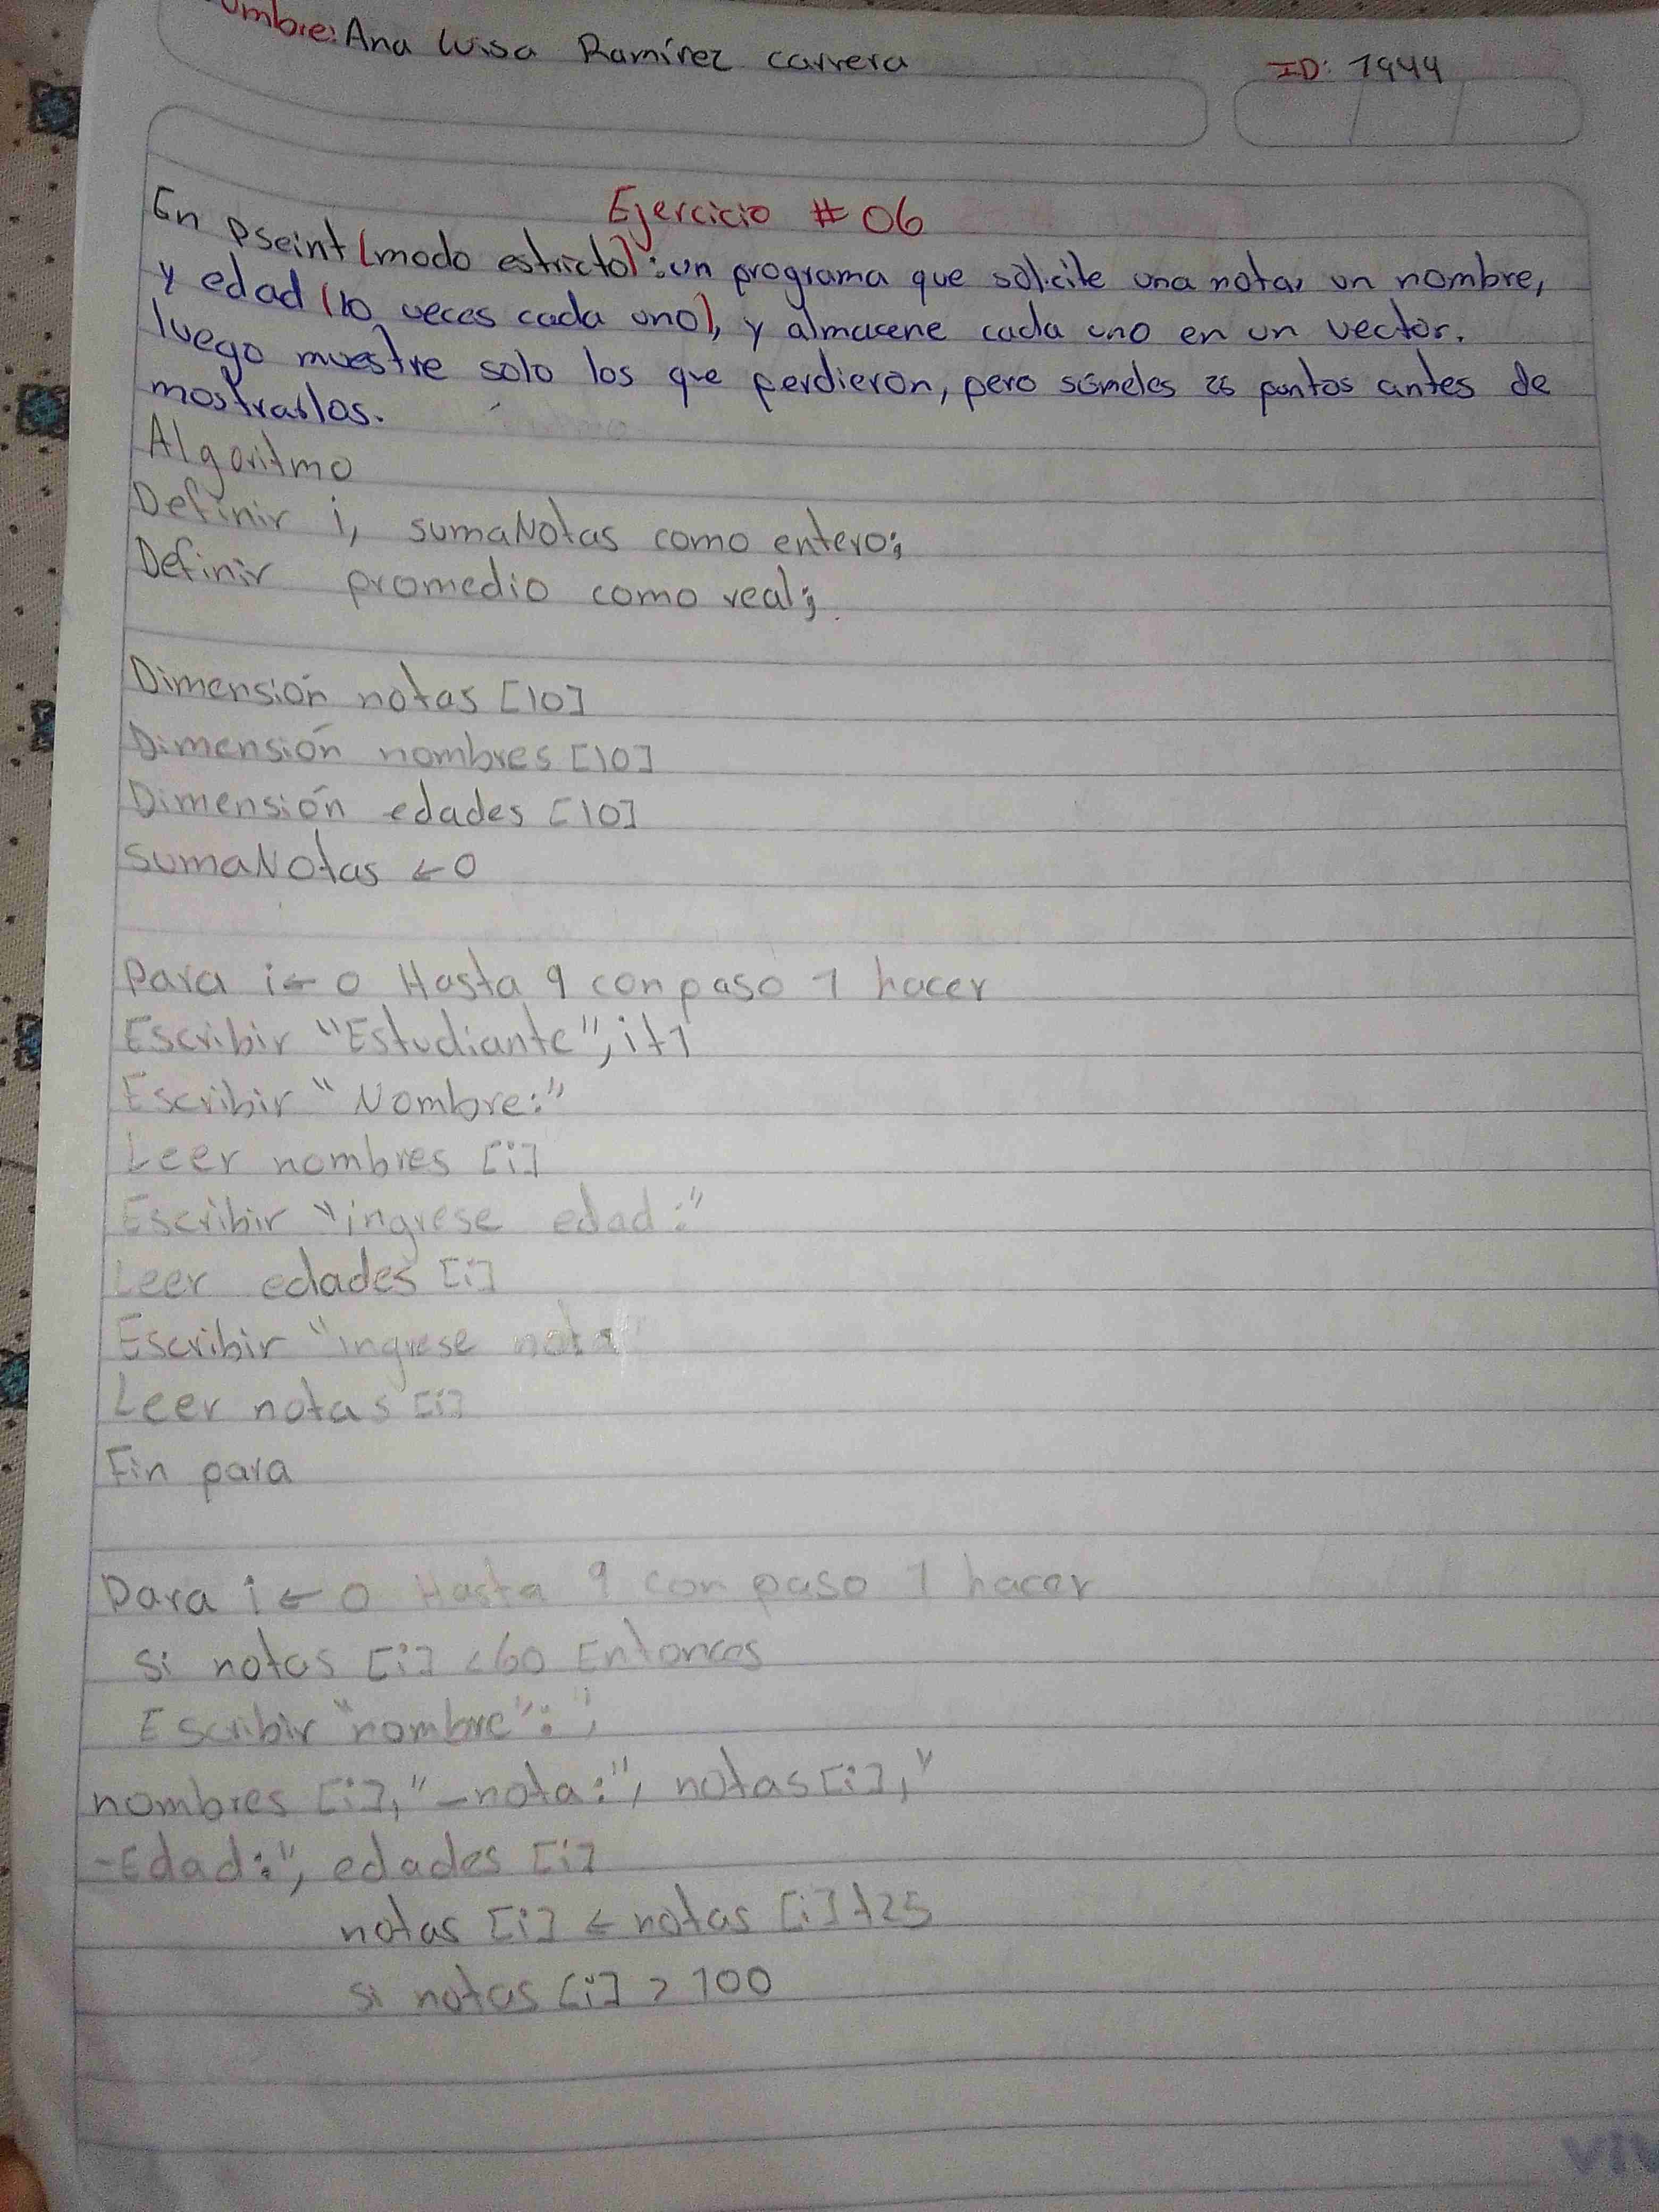 Nombre: Ana Luisa Ramírez carrera
ID: 1944
Ejercicio # 06
En Pseint (modo estricto): un programa que solicite una nota, un nombre,
y edad (10 veces cada uno), y almacene cada uno en un vector.
luego muestre solo los que perdieron, pero súmeles 25 puntos antes de
mostrarlos.
Algoritmo
Definir i, sumaNotas como entero;
Definir promedio como real;
Dimensión notas [10]
Dimensión nombres [10]
Dimensión edades [10]
sumaNotas ← 0
Para i ← 0 Hasta 9 con paso 1 hacer
Escribir "Estudiante", i+1
Escribir "Nombre:"
Leer nombres [i]
Escribir "ingrese edad:"
Leer edades [i]
Escribir "ingrese nota"
Leer notas [i]
Fin para
Para i ← 0 Hasta 9 con paso 1 hacer
si notas [i] <60 Entonces
Escribir "nombre":"
nombres [i], "-nota:", notas[i], "
-Edad:", edades [i]
notas [i] ← notas [i] +25
si notas [i] > 100